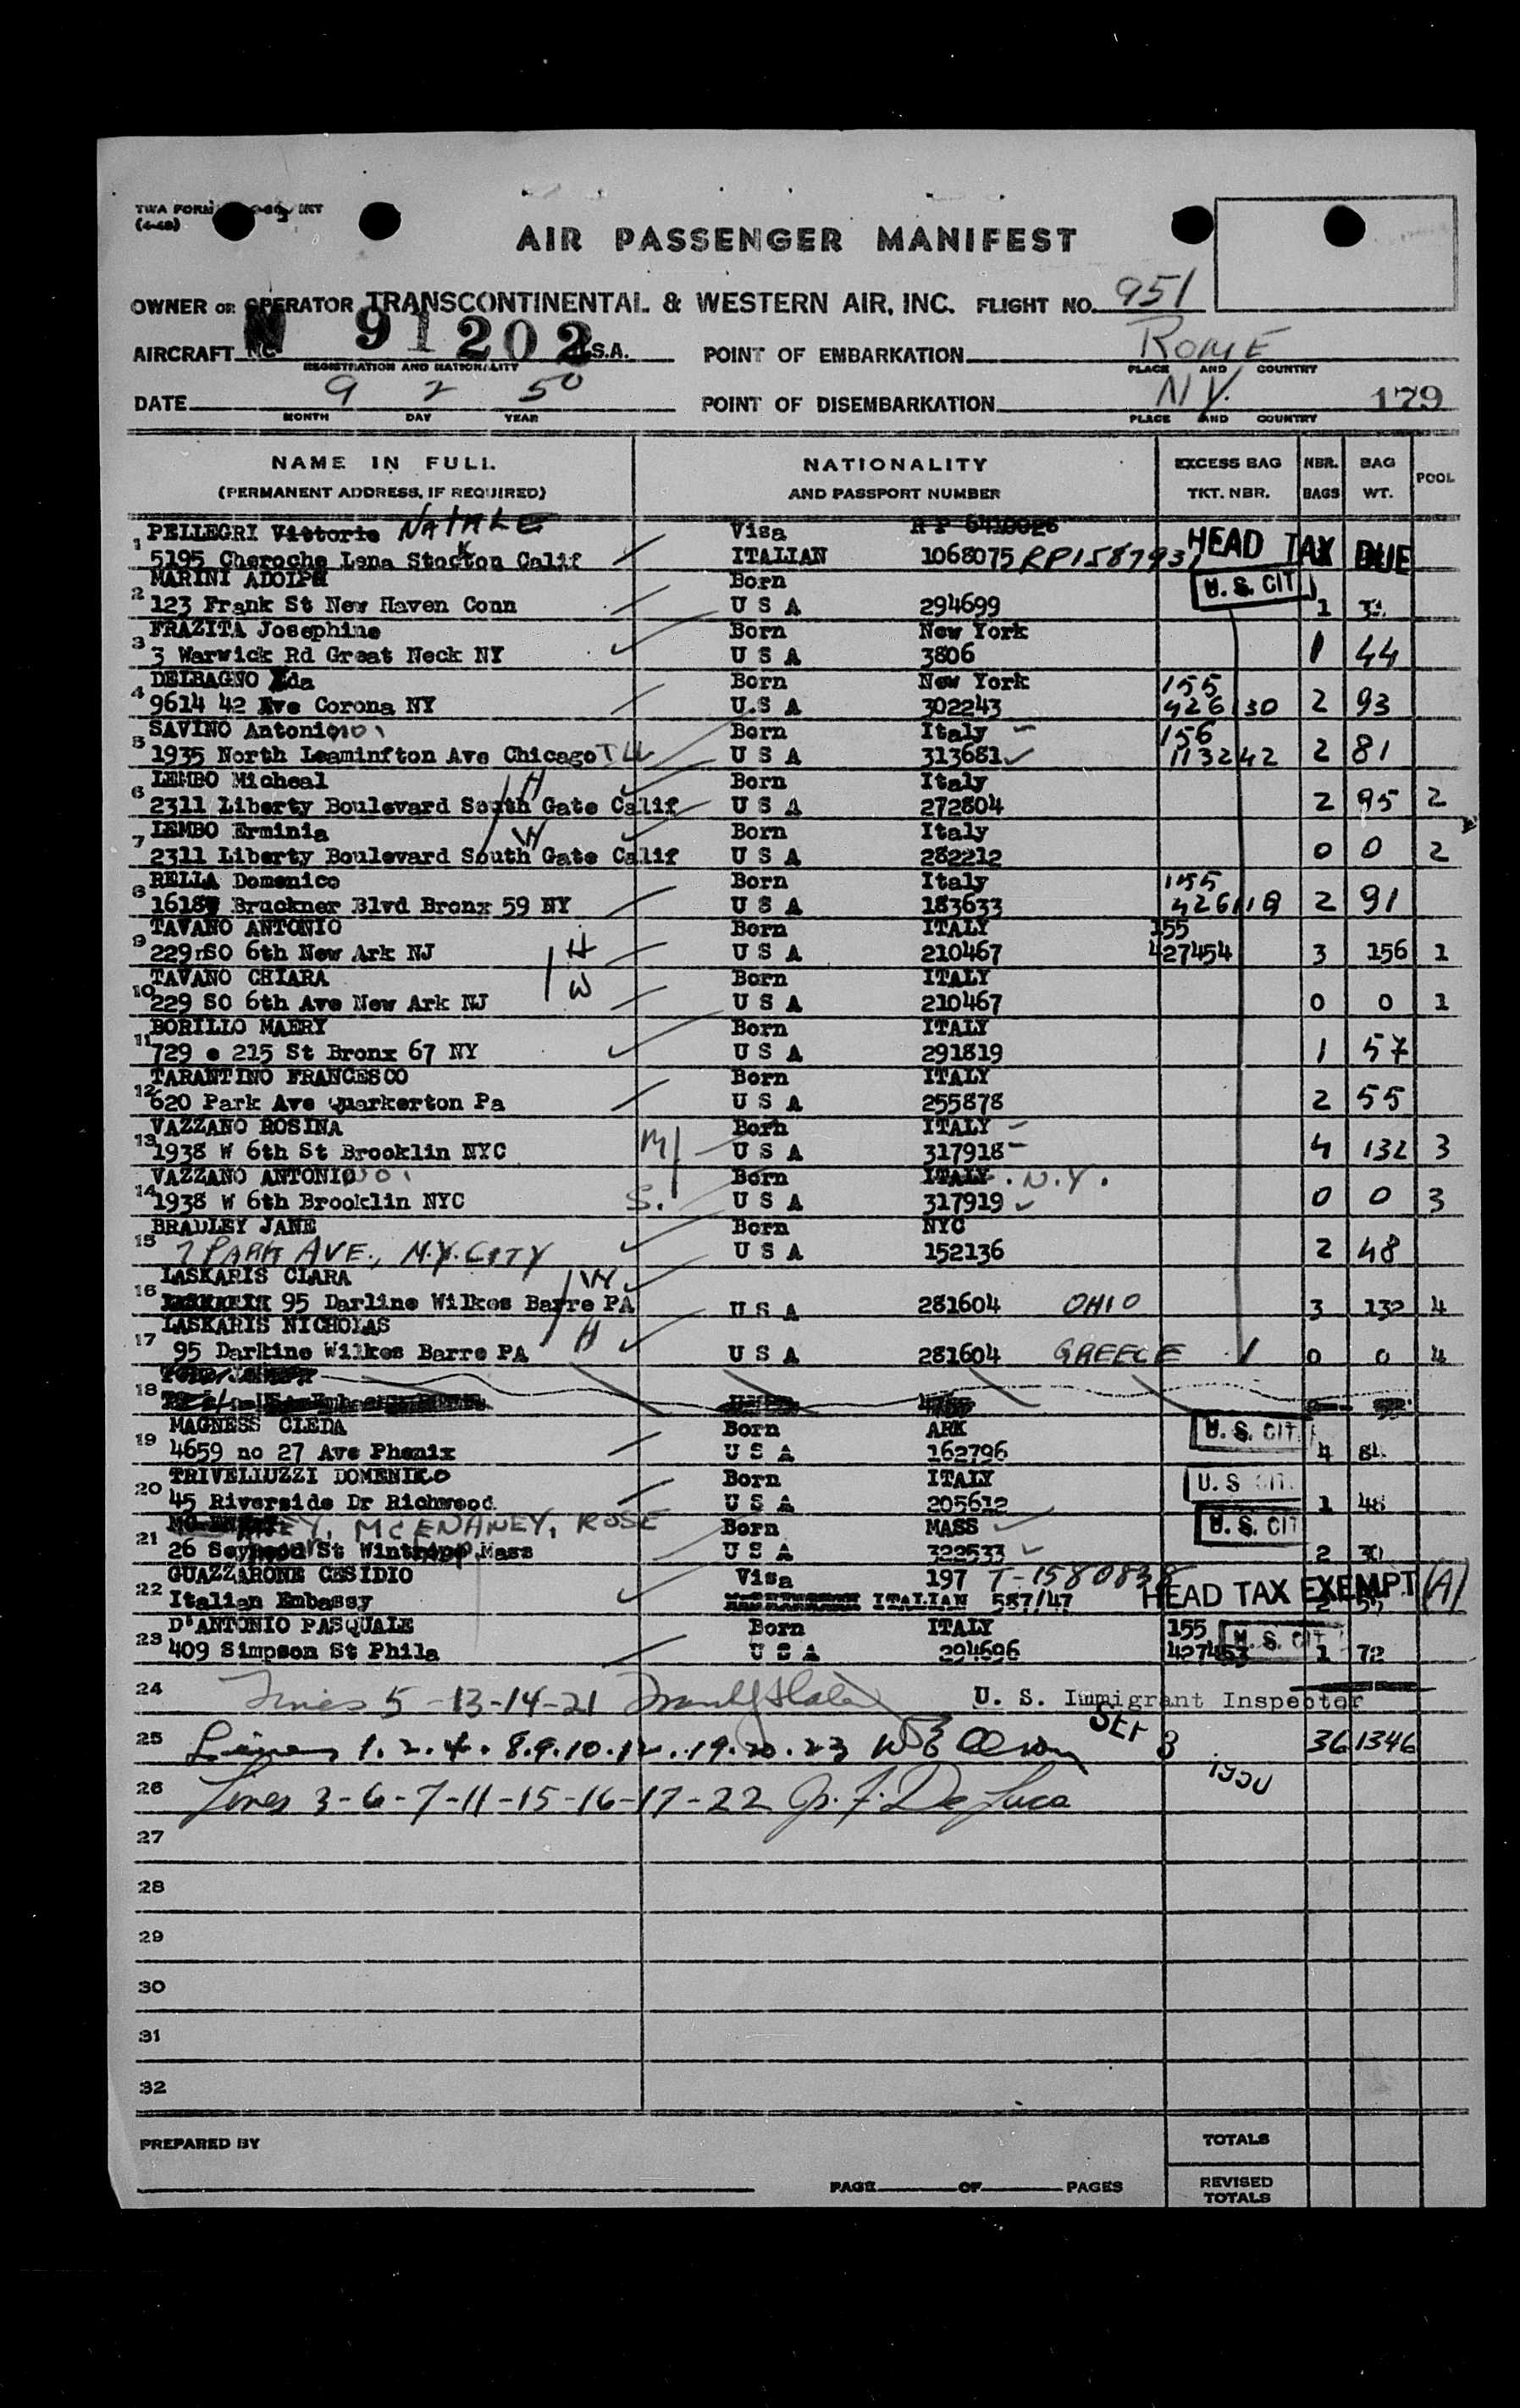 TWA FORM INT
(4-48)
AIR PASSENGER MANIFEST
OWNER OR OPERATOR TRANSCONTINENTAL & WESTERN AIR, INC. FLIGHT NO. 951
AIRCRAFT NC N 91202 U.S.A. POINT OF EMBARKATION ROME
REGISTRATION AND NATIONALITY PLACE AND COUNTRY
DATE 9 2 50 POINT OF DISEMBARKATION N.Y. 179
MONTH DAY YEAR PLACE AND COUNTRY
NAME IN FULL NATIONALITY EXCESS BAG NBR. BAG POOL
(PERMANENT ADDRESS, IF REQUIRED) AND PASSPORT NUMBER TKT. NBR. BAGS WT.
1 PELLEGRI Vittorio NATALE Visa
5195 Cheroche Lena Stocton Calif ITALIAN 1068075 RP1587937 HEAD TAX DUE
2 MARINI ADOLPH Born U.S. CIT
123 Frank St New Haven Conn U S A 294699 1
3 FRAZITA Josephine Born New York
3 Warwick Rd Great Neck NY U S A 3806 1 44
4 DELBAGNO Ida Born New York 155
9614 42 Ave Corona NY U.S A 302243 426130 2 93
5 SAVINO Antonio Born Italy 156
1935 North Leaminfton Ave Chicago Ill U S A 313681 113242 2 81
6 LEMBO Micheal H Born Italy
2311 Liberty Boulevard South Gate Calif U S A 272804 2 95 2
7 LEMBO Erminia W Born Italy
2311 Liberty Boulevard South Gate Calif U S A 282212 0 0 2
8 RELLA Domenico Born Italy 155
1618 Bruckner Blvd Bronx 59 NY U S A 183633 426118 2 91
9 TAVANO ANTONIO H Born ITALY 155
229 SO 6th New Ark NJ U S A 210467 427454 3 156 1
10 TAVANO CHIARA W Born ITALY
229 SO 6th Ave New Ark NJ U S A 210467 0 0 1
11 BORILLO MAERY Born ITALY
729 e 215 St Bronx 67 NY U S A 291819 1 57
12 TARANTINO FRANCESCO Born ITALY
620 Park Ave Quarkerton Pa U S A 255878 2 55
13 VAZZANO ROSINA Born ITALY
1938 W 6th St Brooklin NYC M U S A 317918 4 132 3
14 VAZZANO ANTONIO Born ITALY . N.Y.
1938 W 6th Brooklin NYC S. U S A 317919 0 0 3
15 BRADLEY JANE Born NYC
7 PARK AVE., N.Y. CITY U S A 152136 2 48
16 LASKARIS CLARA W
95 Darline Wilkes Barre PA U S A 281604 OHIO 3 132 4
17 LASKARIS NICHOLAS H
95 Darline Wilkes Barre PA U S A 281604 GREECE 0 0 4
18
19 MAGNESS CLEDA Born ARK U.S. CIT
4659 no 27 Ave Phenix U S A 162796 4
20 TRIVELIUZZI DOMENICO Born ITALY U.S CIT.
45 Riverside Dr Richwood U S A 205612 1 48
21 MCENANEY, ROSE Born MASS U.S. CIT
26 St Winthrop Mass U S A 322533 2 30
22 GUAZZARONE CESIDIO Visa 197 T-1580838
Italian Embassy ITALIAN 587/47 HEAD TAX EXEMPT (A)
23 D'ANTONIO PASQUALE Born ITALY 155 U.S. CIT
409 Simpson St Phila U S A 294696 427453 1 72
24 Lines 5-13-14-21 U. S. Immigrant Inspector
25 Lines 1.2.4.8.9.10.12.19.20.23 SEP 3 1950 36 1346
26 Lines 3-6-7-11-15-16-17-22 De Luca
27
28
29
30
31
32
PREPARED BY TOTALS
PAGE OF PAGES REVISED TOTALS